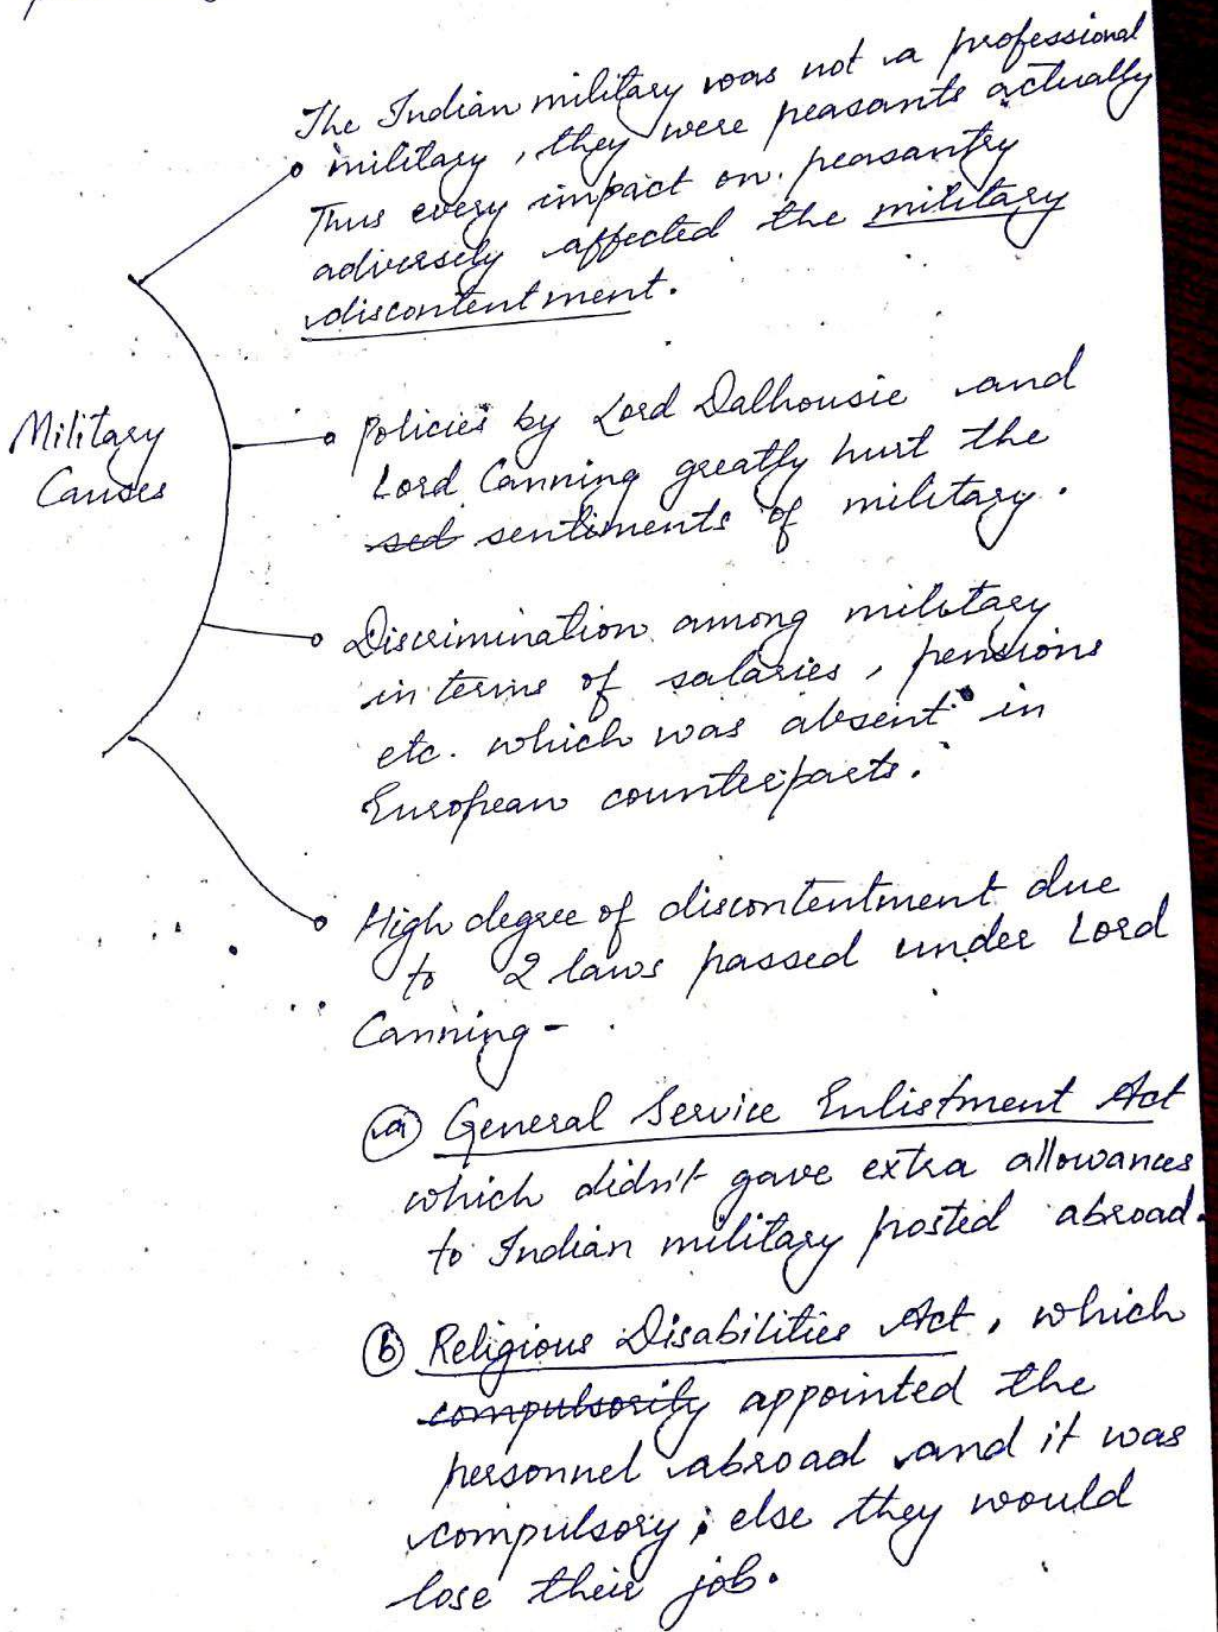 The Indian military was not a professional
military, they were peasants actually
Thus every impact on peasantry
adversely affected the military
discontentment.
Military
Causes
Policies by Lord Dalhousie and
Lord Canning greatly hurt the
sed sentiments of military.
Discrimination among military
in terms of salaries, pensions
etc. which was absent in
European counterparts.
High degree of discontentment due
to 2 laws passed under Lord
Canning -
(a) General Service Enlistment Act
which didn't gave extra allowances
to Indian military posted abroad.
(b) Religious Disabilities Act, which
compulsorily appointed the
personnel abroad and it was
compulsory; else they would
lose their job.